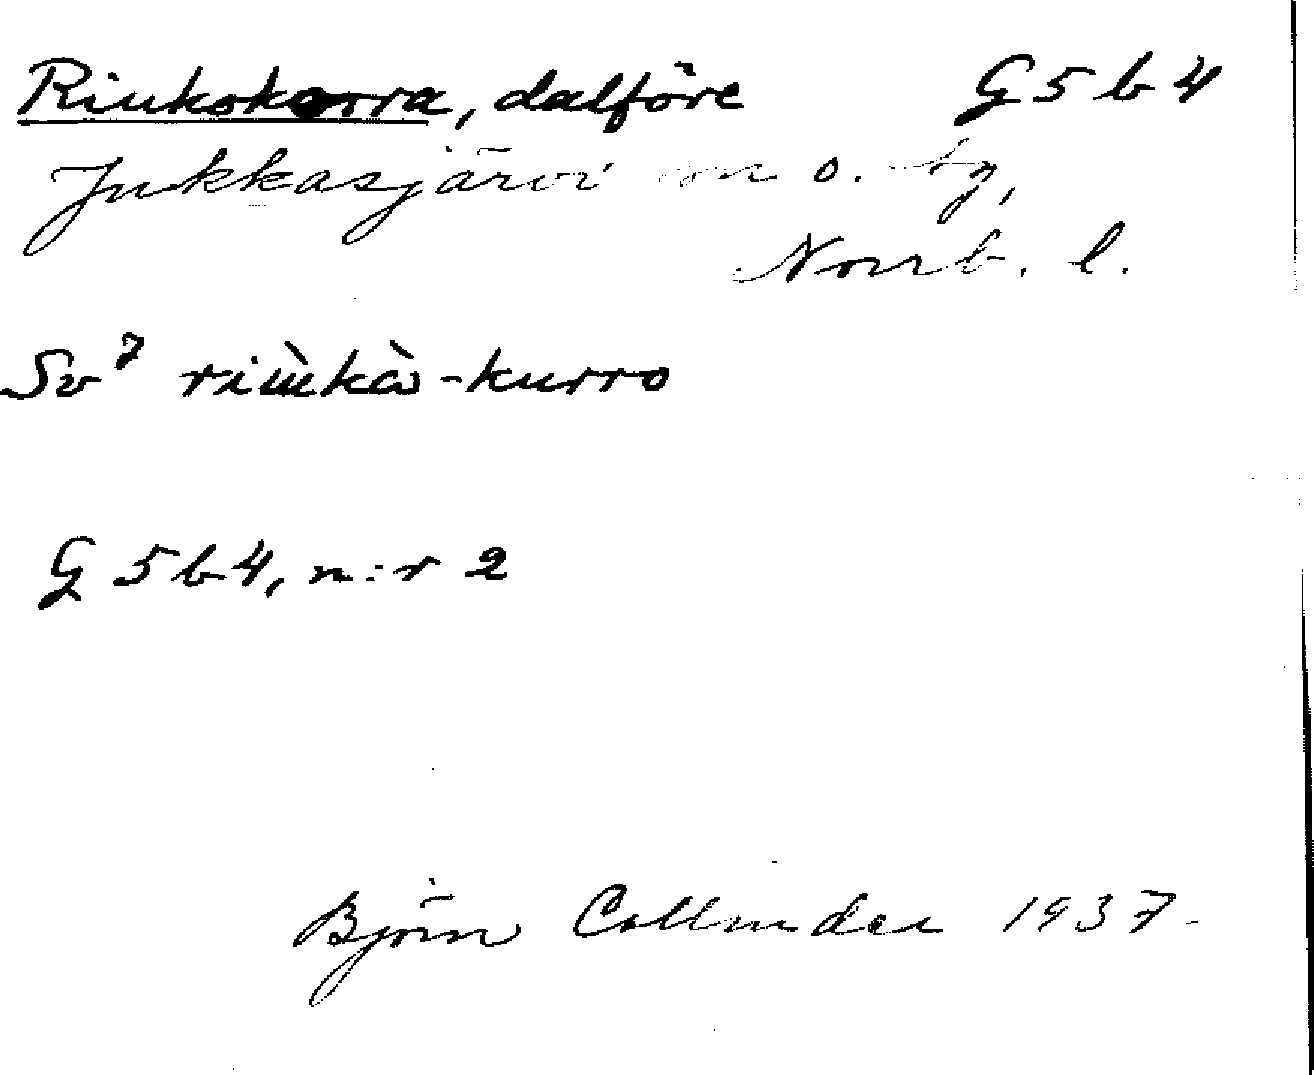 Riukokorra, dalföre G5b4
Jukkasjärvi sn o. tg,
Norrb. l.
Sv⁷ riùkà-kurro
G5b4, n:r 2
Björn Collinder 1937